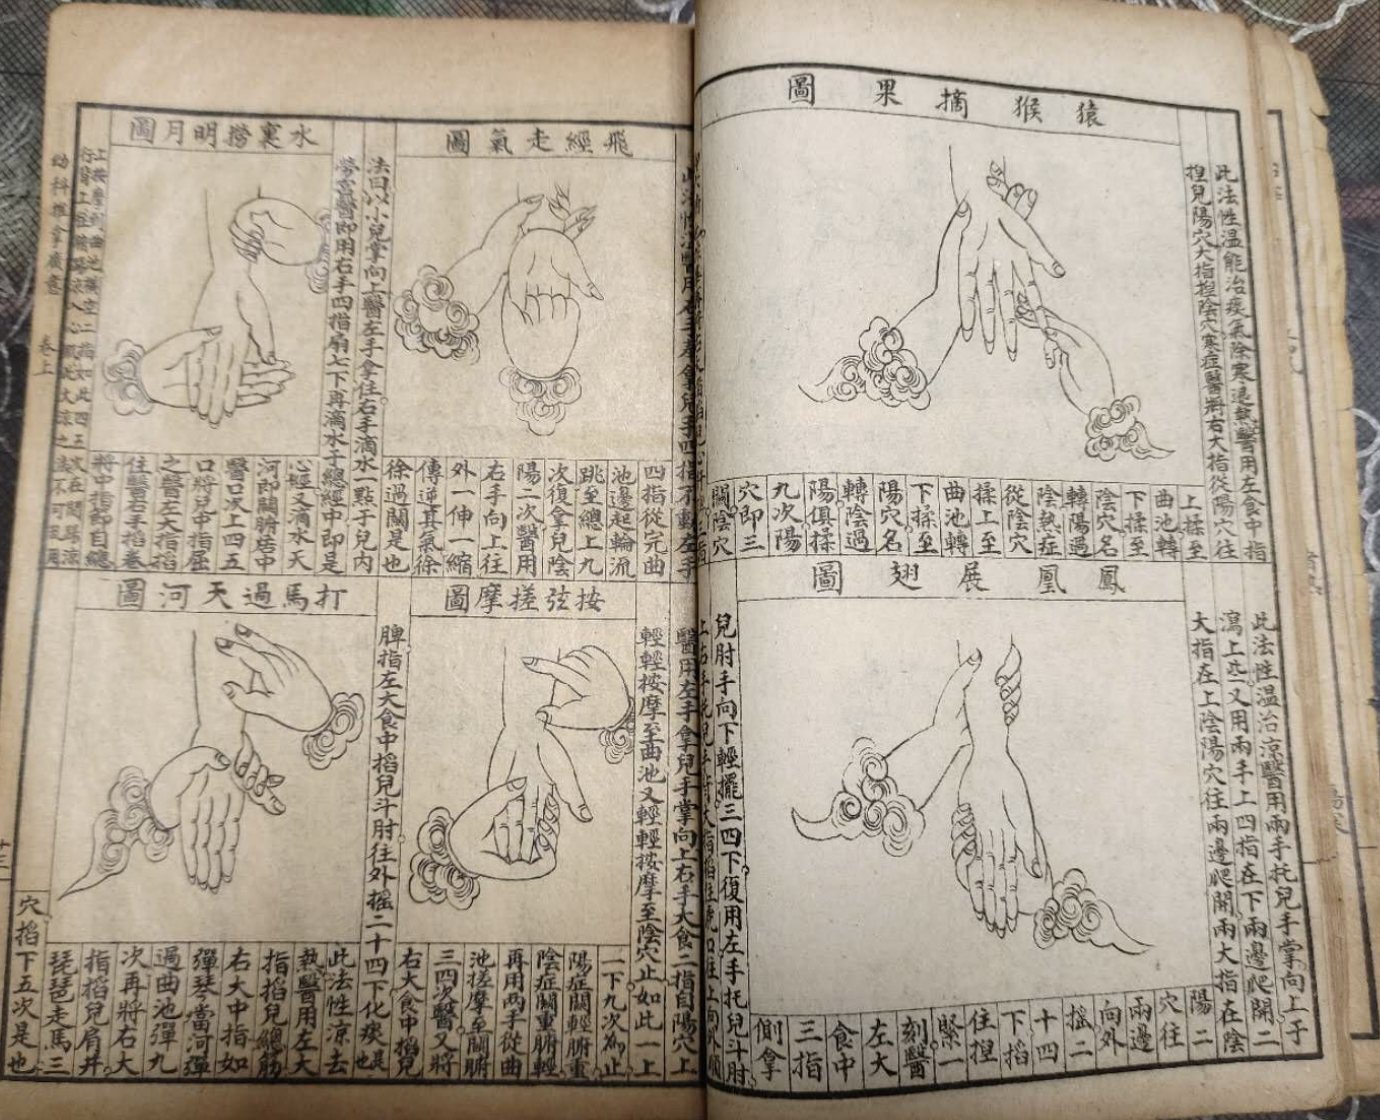 猿猴摘果圖
此法性温能治痰氣除寒退熱醫用左食中指
捏兒陽穴大指揑陰穴寒症醫將右大指從陽穴往
上揉至
曲池轉
下揉至
陰穴名
轉陽過
陰熱症
從陰穴
揉上至
曲池轉
下揉至
陽穴名
轉陰過
陽俱揉
九次陽
穴即三
關陰穴
鳳凰展翅圖
此法性温治涼醫用兩手托兒手掌向上于
瀉上些又用兩手上四指在下兩邊爬開二
大指在上陰陽穴往兩邊爬開兩大指在陰
陽二
穴往
兩邊
向外
搖二
十四
下掐
住捏
緊一
刻醫
左大
食中
三指
側拿
兒肘手向下輕擺三四下復用左手托兒斗肘
上右手托兒手背大指掐住虎口往上向外順
飛經走氣圖
四指從完曲
池邊起輪流
跳至總上九
次復拿兒陰
陽二次醫用
右手向上往
外一伸一縮
傳逆其氣徐
徐過關是也
水裏撈明月圖
法曰以小兒掌向上醫左手拿住右手滴水一點于兒内
勞宮醫即用右手四指扇七下再滴水于總經中即是
心經又滴水天
河即關腑居中
醫口吹上四五
口將兒中指屈
之醫左大指掐
住醫右手捏卷
將中指節自總
上按摩到曲池橫空二指如此四五次在關歸涼
幼科推拿廣意
卷上
按弦搓摩圖
醫用左手拿兒手掌向上右手大食二指自陽穴上
輕輕按摩至曲池又輕輕按摩至陰穴止如此一上
一下九次爲止
陽症關輕腑重
陰症關重腑輕
再用兩手從曲
池搓摩至關腑
三四次醫又將
右大食中掐兒
脾指左大食中掐兒斗肘往外搖二十四下化痰是也
打馬過天河圖
此法性涼去
熱醫用左大
指掐兒總筋
右大中指如
彈琴當河彈
過曲池彈九
次再將右大
指掐兒肩井
琵琶走馬三
穴掐下五次是也
十三